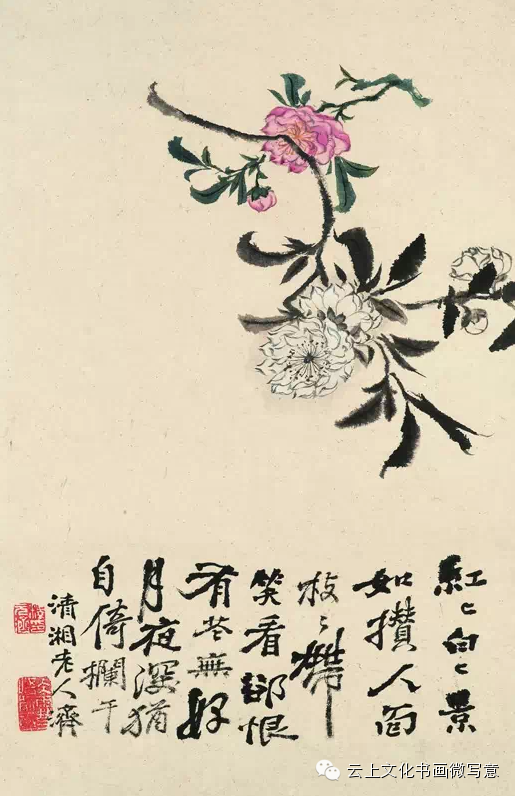 紅〻白〻景
如攢人面
枝〻帶
笑看卻恨
有花無好
月夜深猶
自倚欄干
清湘老人濟
云上文化书画微写意